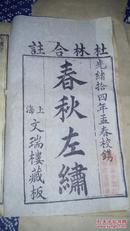 杜林合註
光緒拾四年孟春校鐫
春秋左繡
上海文瑞樓藏板